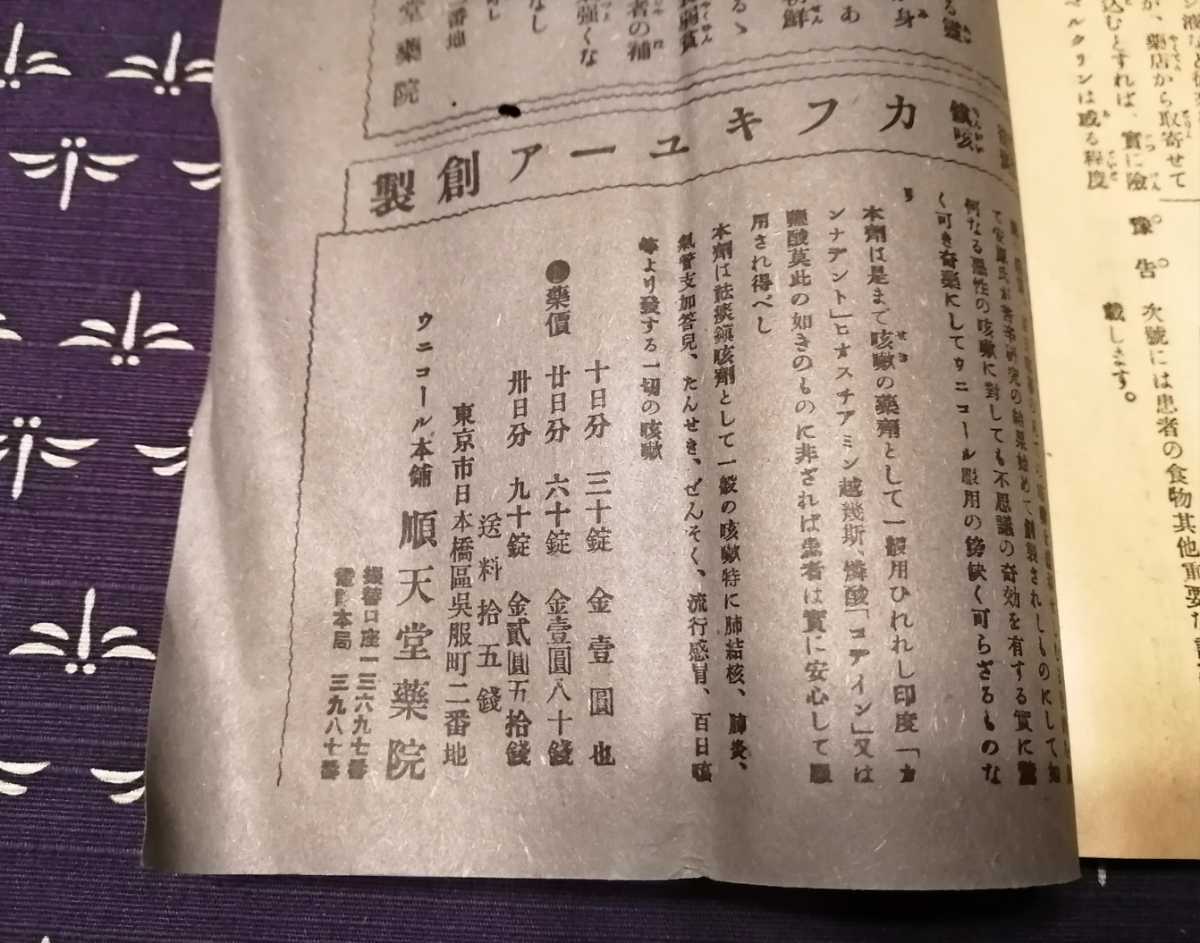 豫告 次號には患者の食物其他重要な
載します。
が、藥店から取寄せて
込むとすれば、實に險
ルクリンは或る程度
る靈
身
あ
朝鮮
るゝ
者の補
強くな
なし
二番地
堂藥院
鎭咳 カフキユーア創製
て安原氏が苦辛研究の結果始めて創製されしものにして如
何なる惡性の咳嗽に對しても不思議の奇効を有する實に驚
く可き奇藥にしてウニコール服用の傍缺く可らざるものな
り
本劑は是まで咳嗽の藥劑として一般用ひれれし印度「カ
ンナデント」ヒオスチアミン越幾斯、燐酸「コデイン」又は
鹽酸莫比の如きのものに非ざれば患者は實に安心して服
用され得べし
本劑は祛痰鎭咳劑として一般の咳嗽特に肺結核、肺炎、
氣管支加答兒、たんせき、ぜんそく、流行感冒、百日咳
等より發する一切の咳嗽
●藥價 十日分 三十錠 金壹圓也
廿日分 六十錠 金壹圓八十錢
卅日分 九十錠 金貳圓五拾錢
送料拾五錢
東京市日本橋區吳服町二番地
ウニコール本舗 順天堂藥院
振替口座一三六九七番
電話本局 三九八十番